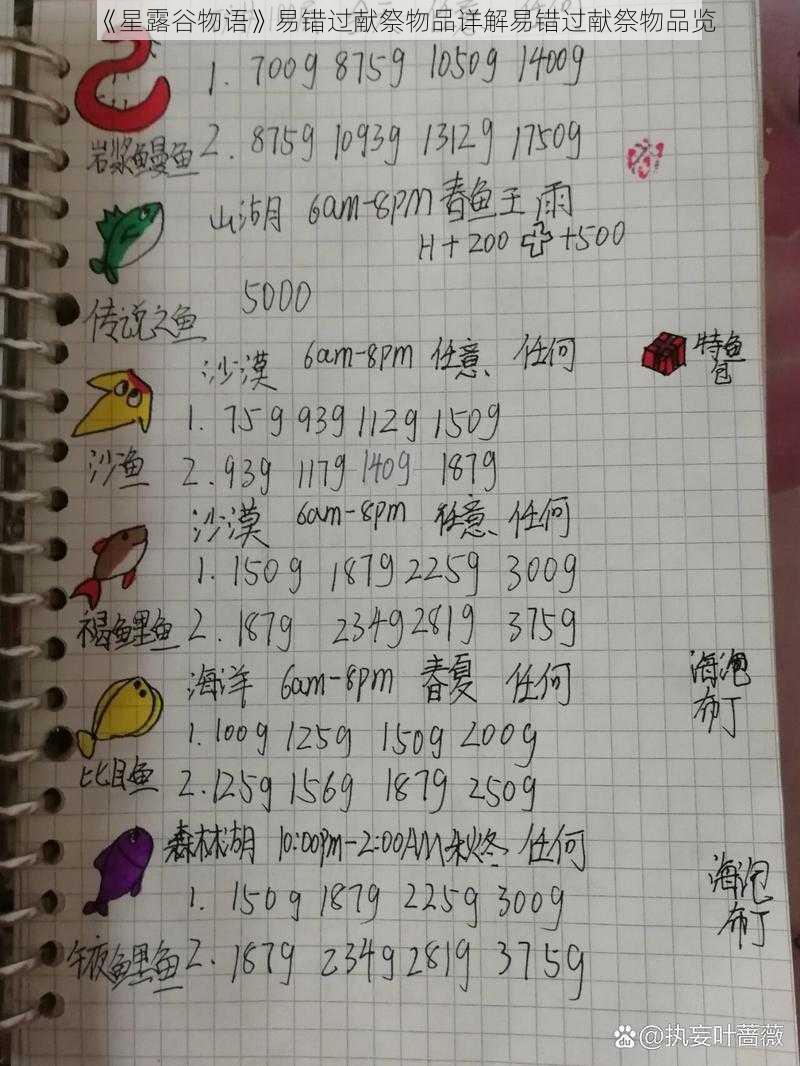 《星露谷物语》易错过献祭物品详解易错过献祭物品览
1. 700g 875g 1050g 1400g
岩浆鳗鱼 2. 875g 1093g 1312g 1750g
山湖 6am-8pm 春鱼王 雨
H+200 +500
传说之鱼 5000
沙漠 6am-8pm 任意 任何 特鱼包
1. 75g 93g 112g 150g
沙鱼 2. 93g 117g 140g 187g
沙漠 6am-8pm 任意 任何
1. 150g 187g 225g 300g
褐鲤鱼 2. 187g 234g 281g 375g
海洋 6am-8pm 春夏 任何 海泡布丁
1. 100g 125g 150g 200g
比目鱼 2. 125g 156g 187g 250g
森林湖 10:00pm-2:00AM 秋冬 任何 海泡布丁
1. 150g 187g 225g 300g
鲤鱼 2. 187g 234g 281g 375g
Baidu @执妄叶蔷薇